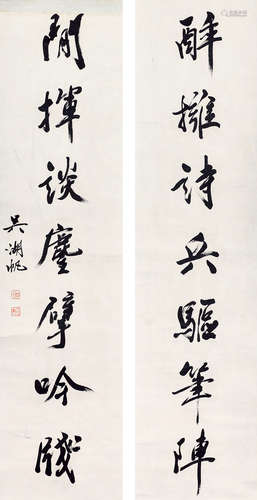 醉擁詩兵驅筆陣
閒揮談麈擘吟牋
吳湖帆